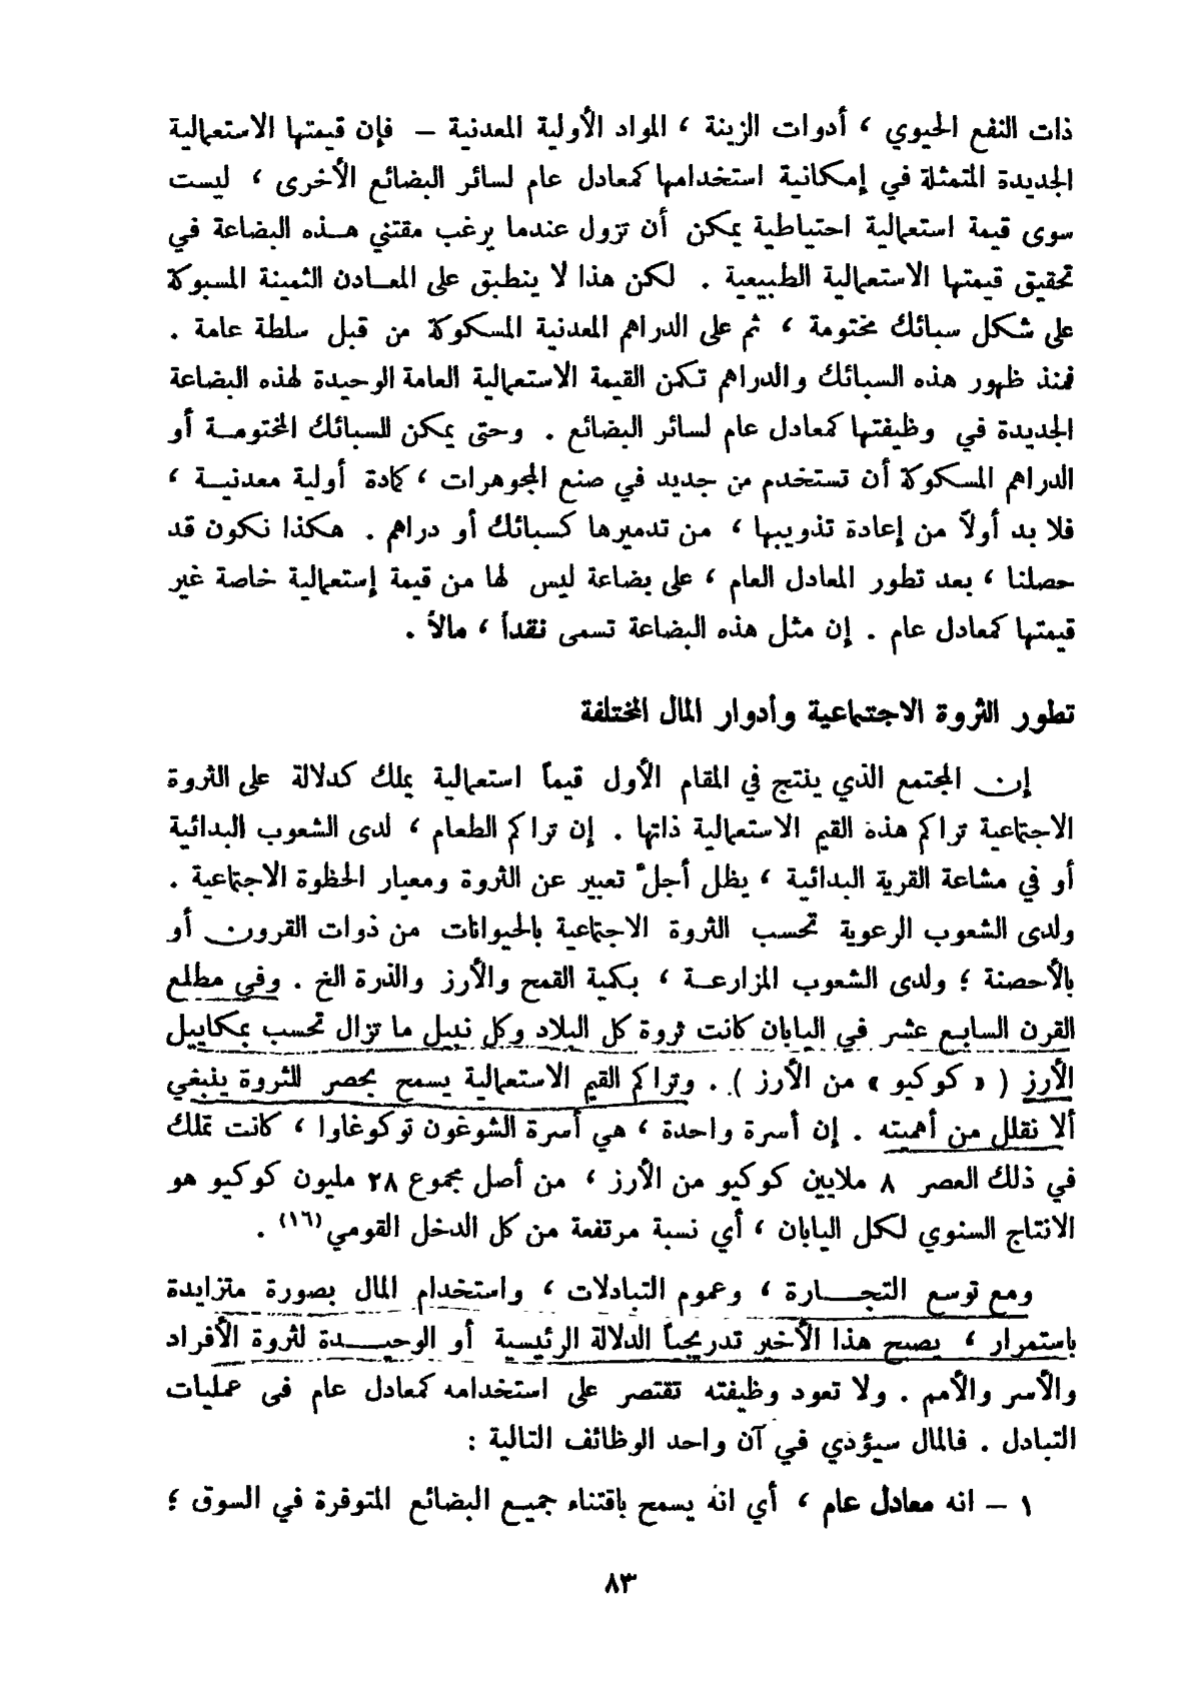 ذات النفع الحيوي ، أدوات الزينة ، المواد الأولية المعدنية – فإن قيمتها الاستعمالية
الجديدة المتمثلة في إمكانية استخدامها كمعادل عام لسائر البضائع الأخرى ، ليست
سوى قيمة استعمالية احتياطية يمكن أن تزول عندما يرغب مقتني هذه البضاعة في
تحقيق قيمتها الاستعمالية الطبيعية . لكن هذا لا ينطبق على المعادن الثمينة المسبوكة
على شكل سبائك مختومة ، ثم على الدراهم المعدنية المسكوكة من قبل سلطة عامة .
فمنذ ظهور هذه السبائك والدراهم تكمن القيمة الاستعمالية العامة الوحيدة لهذه البضاعة
الجديدة في وظيفتها كمعادل عام لسائر البضائع . وحتى يمكن للسبائك المختومة أو
الدراهم المسكوكة أن تستخدم من جديد في صنع المجوهرات ، كمادة أولية معدنية ،
فلا بد أولاً من إعادة تذويبها ، من تدميرها كسبائك أو دراهم . هكذا نكون قد
حصلنا ، بعد تطور المعادل العام ، على بضاعة ليس لها من قيمة إستعمالية خاصة غير
قيمتها كمعادل عام . إن مثل هذه البضاعة تسمى نقداً ، مالاً .
تطور الثروة الاجتماعية وأدوار المال المختلفة
إن المجتمع الذي ينتج في المقام الأول قيماً استعمالية يملك كدلالة على الثروة
الاجتماعية تراكم هذه القيم الاستعمالية ذاتها . إن تراكم الطعام ، لدى الشعوب البدائية
أو في مشاعة القرية البدائية ، يظل أجلّ تعبير عن الثروة ومعيار الحظوة الاجتماعية .
ولدى الشعوب الرعوية تحسب الثروة الاجتماعية بالحيوانات من ذوات القرون أو
بالأحصنة ؛ ولدى الشعوب المزارعة ، بكمية القمح والأرز والذرة الخ . وفي مطلع
القرن السابع عشر في اليابان كانت ثروة كل البلاد وكل نبيل ما تزال تحسب بمكاييل
الأرز ( « كوكيو » من الأرز ) . وتراكم القيم الاستعمالية يسمح بحصر للثروة ينبغي
ألا نقلل من أهميته . إن أسرة واحدة ، هي أسرة الشوغون توكوغاوا ، كانت تملك
في ذلك العصر ٨ ملايين كوكيو من الأرز ، من أصل مجموع ٢٨ مليون كوكيو هو
الانتاج السنوي لكل اليابان ، أي نسبة مرتفعة من كل الدخل القومي (١٦) .
ومع توسع التجارة ، وعموم التبادلات ، واستخدام المال بصورة متزايدة
باستمرار ، يصبح هذا الأخير تدريجياً الدلالة الرئيسية أو الوحيدة لثروة الأفراد
والأسر والأمم . ولا تعود وظيفته تقتصر على استخدامه كمعادل عام في عمليات
التبادل . فالمال سيؤدي في آن واحد الوظائف التالية :
١ – انه معادل عام ، أي انه يسمح باقتناء جميع البضائع المتوفرة في السوق ؛
٨٣